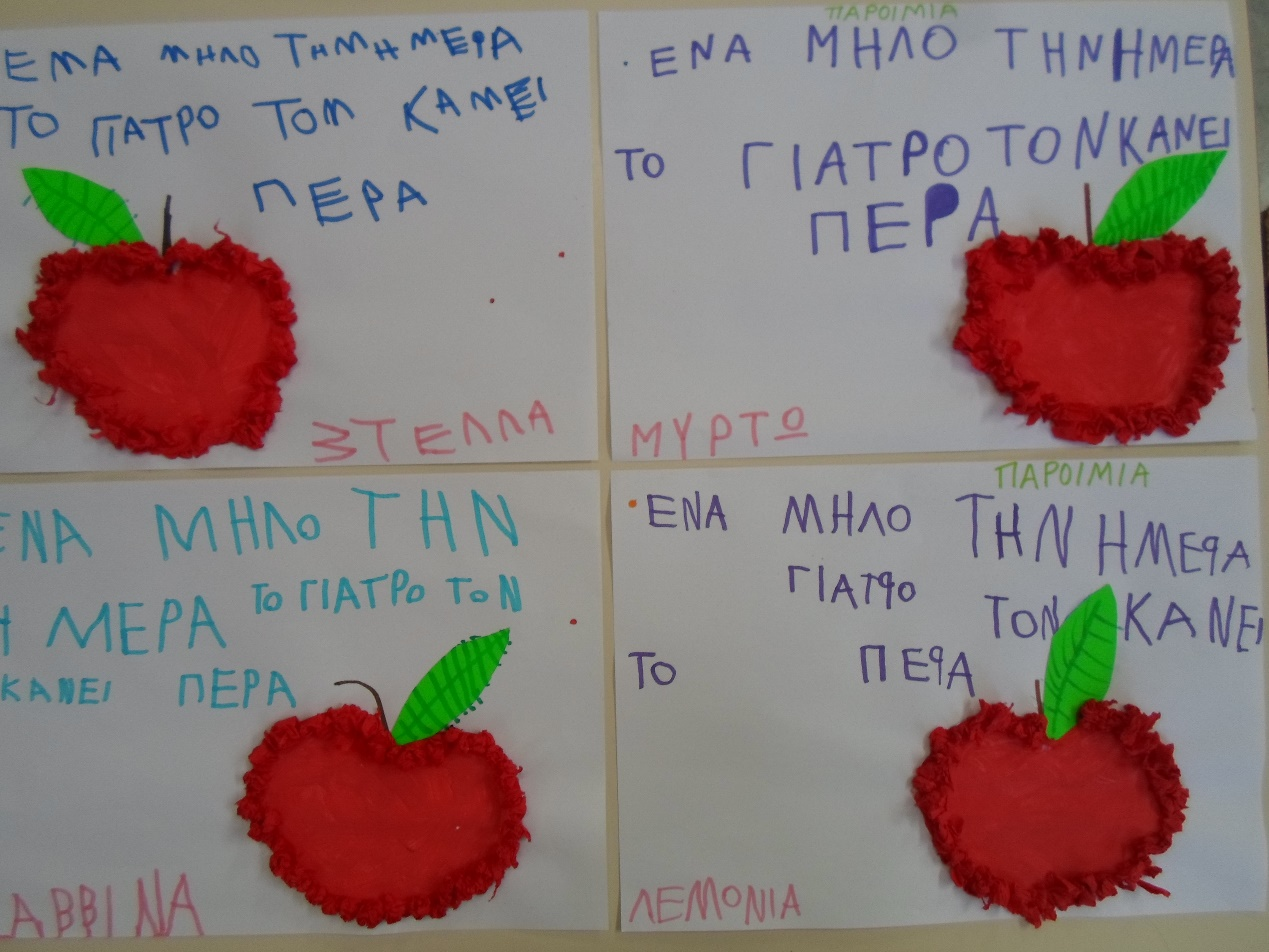 ΕΜΑ ΜΗΛΟ ΤΗΜ ΗΜΕΡΑ
ΤΟ ΓΙΑΤΡΟ ΤΟΜ ΚΑΜΕΙ
ΠΕΡΑ
ΣΤΕΛΛΑ
ΠΑΡΟΙΜΙΑ
ΕΝΑ ΜΗΛΟ ΤΗΝ ΗΜΕΡΑ
ΤΟ ΓΙΑΤΡΟ ΤΟΝ ΚΑΝΕΙ
ΠΕΡΑ
ΜΥΡΤΩ
ΕΝΑ ΜΗΛΟ ΤΗΝ
Η ΜΕΡΑ ΤΟ ΓΙΑΤΡΟ ΤΟΝ
ΚΑΝΕΙ ΠΕΡΑ
ΑΒΒΙΝΑ
ΠΑΡΟΙΜΙΑ
ΕΝΑ ΜΗΛΟ ΤΗΝ ΗΜΕΡΑ
ΓΙΑΤΡΟ ΤΟΝ ΚΑΝΕΙ
ΤΟ ΠΕΡΑ
ΛΕΜΟΝΙΑ